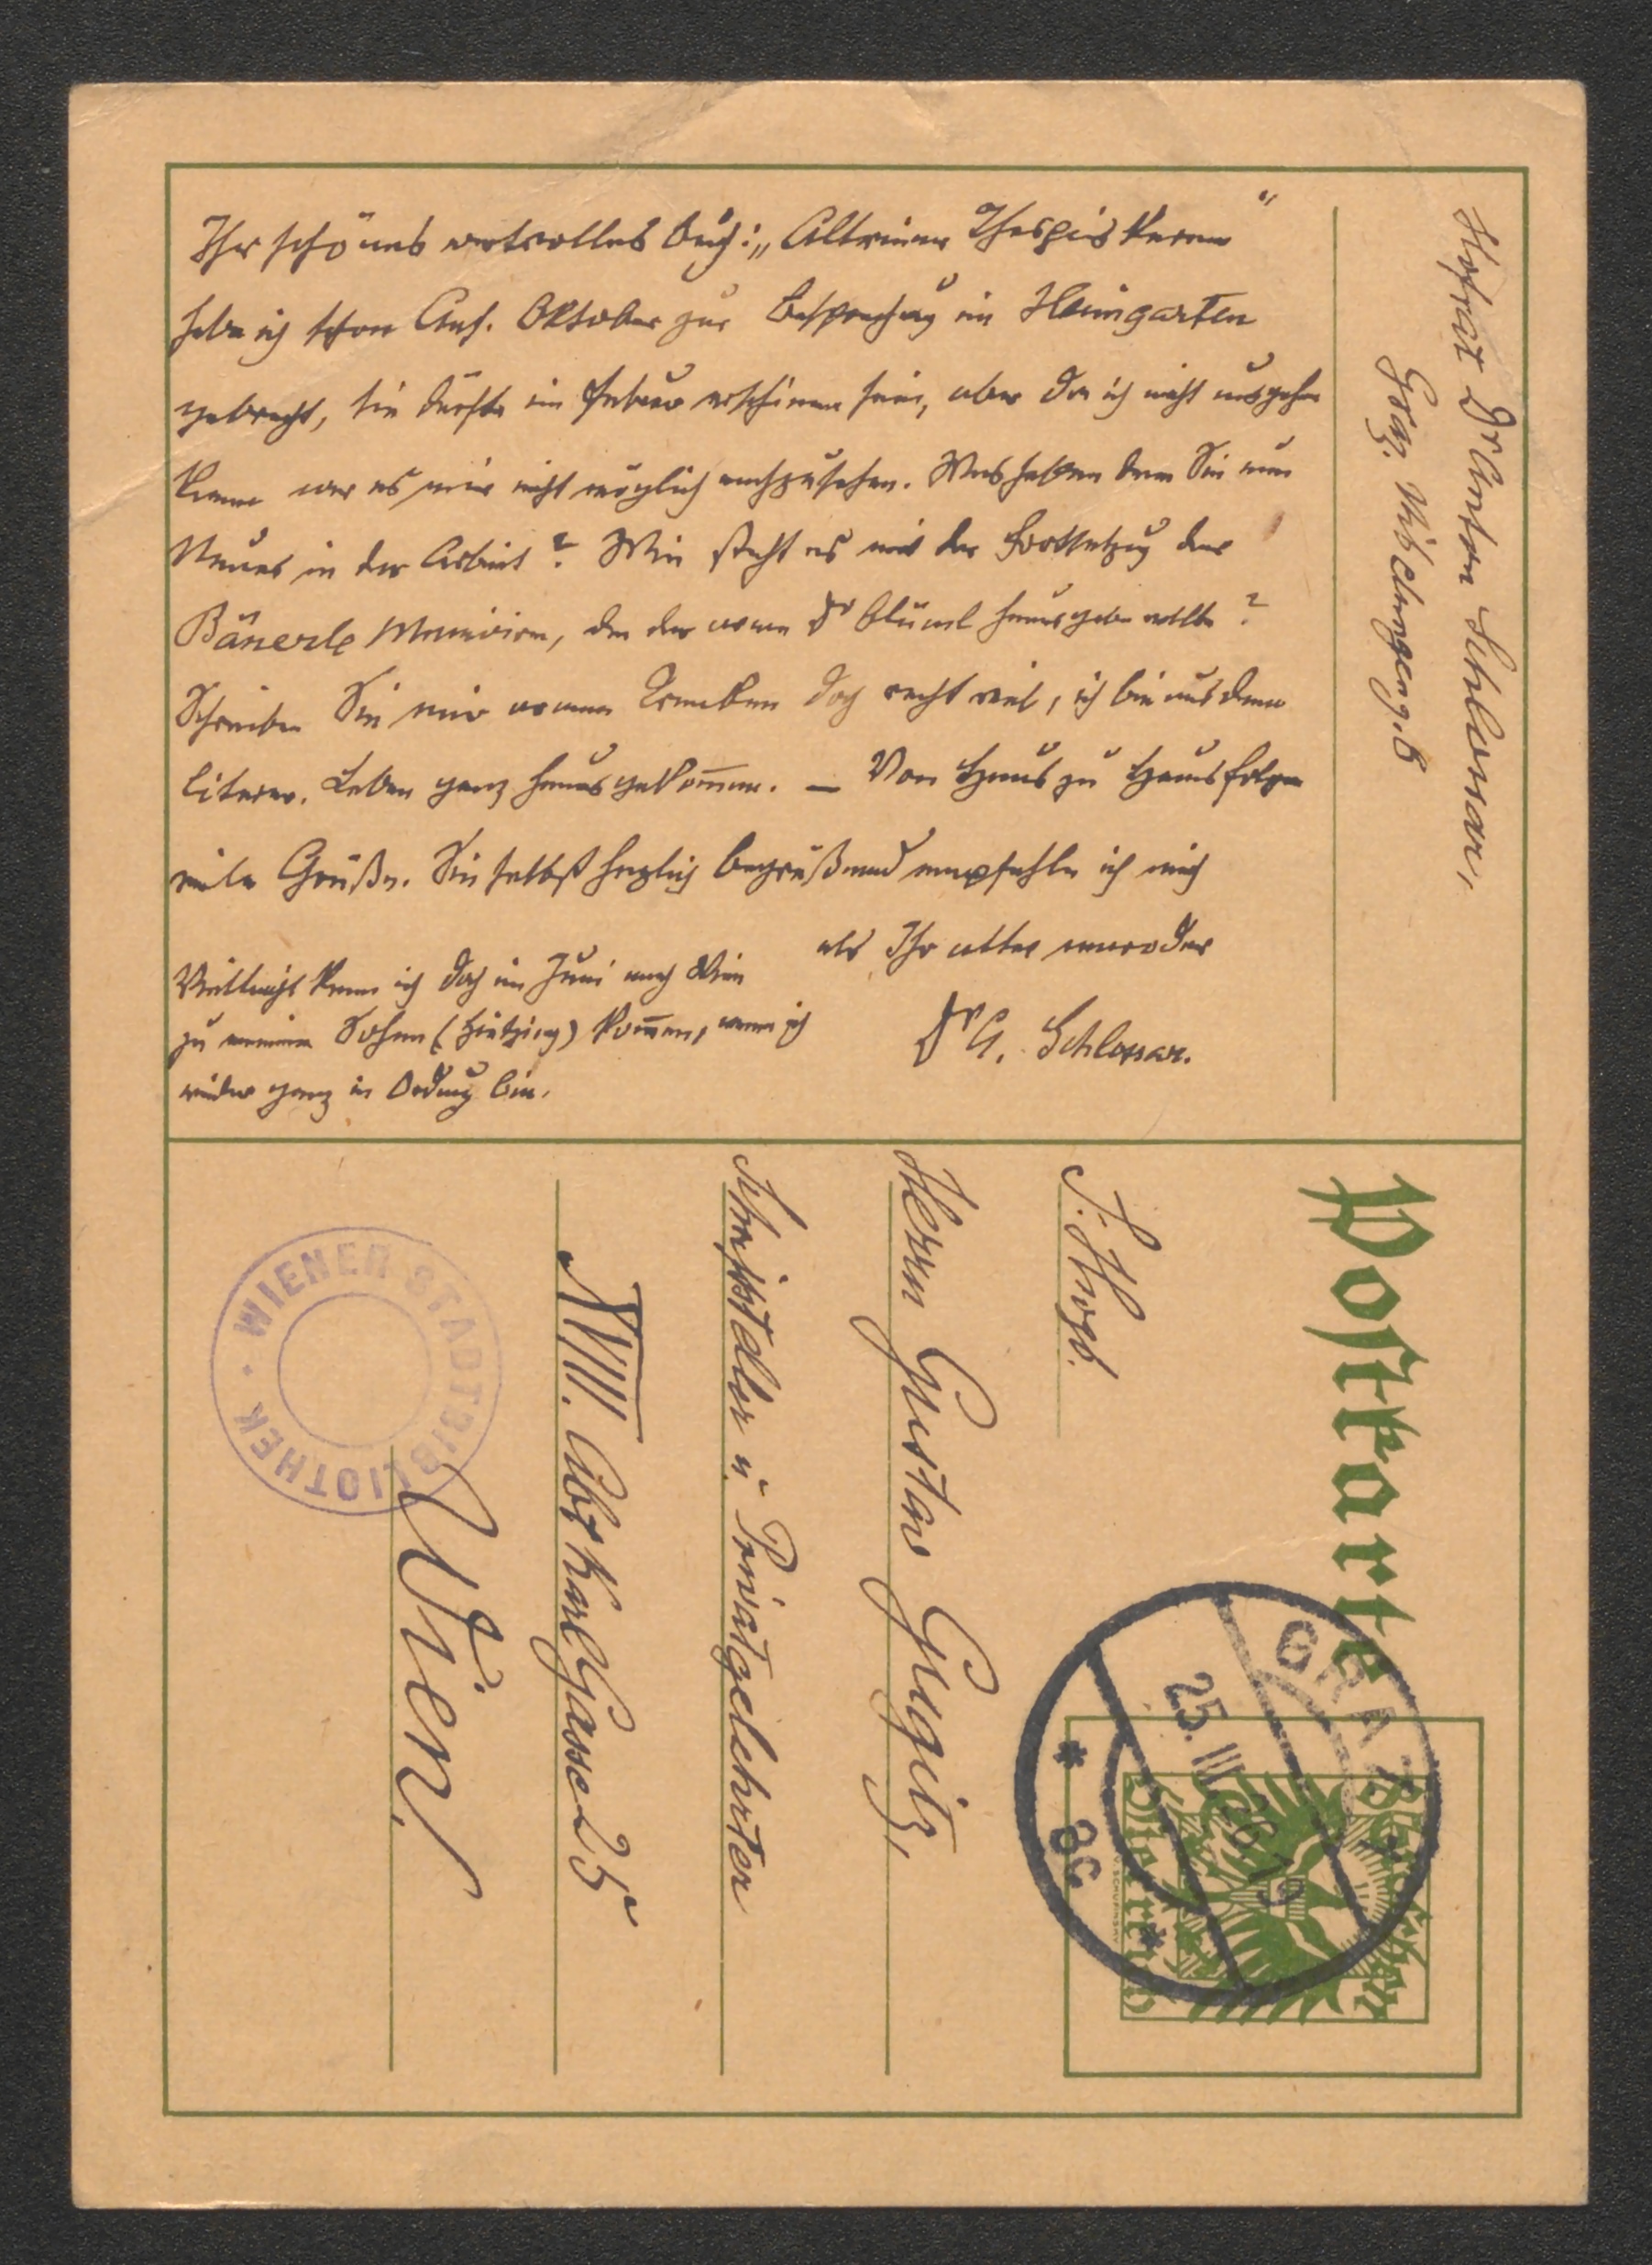 Ihr schönes wertvolles Buch: „Altwiener Thespiskarren“
habe ich schon Anf. Oktober zur Besprechung im Heimgarten
gebracht, sie dürfte im Feber erschienen sein, aber da ich nicht ausgehen
kann war es mir nicht möglich nachzusehen. Was haben denn Sie nun
Neues in der Arbeit? Wie steht es mit der Fortsetzung der
Bäuerle Memoiren, die der arme Dr Blümel herausgeben wollte?
Schreiben Sie mir armen Kranken doch recht viel, ich bin aus dem
literar. Leben ganz herausgekommen. – Von Haus zu Haus folgen
viele Grüße. Sie selbst herzlich begrüßend empfehle ich mich
als Ihr alter maroder
Dr A. Schlossar.
Vielleicht kann ich doch im Juni nach Wien
zu meinem Sohne (Hietzing) kommen, wenn ich
wieder ganz in Ordnung bin.
Hofrat Dr Anton Schlossar,
Graz,
Postkarte
S. Hwgb.
Herrn Gustav Gugitz,
Schriftsteller u. Privatgelehrten
XVIII. Abt Karl Gasse 25
Wien.
WIENER STADTBIBLIOTHEK
GRAZ
25.III.26
* 8c *
Groschen
Österreich